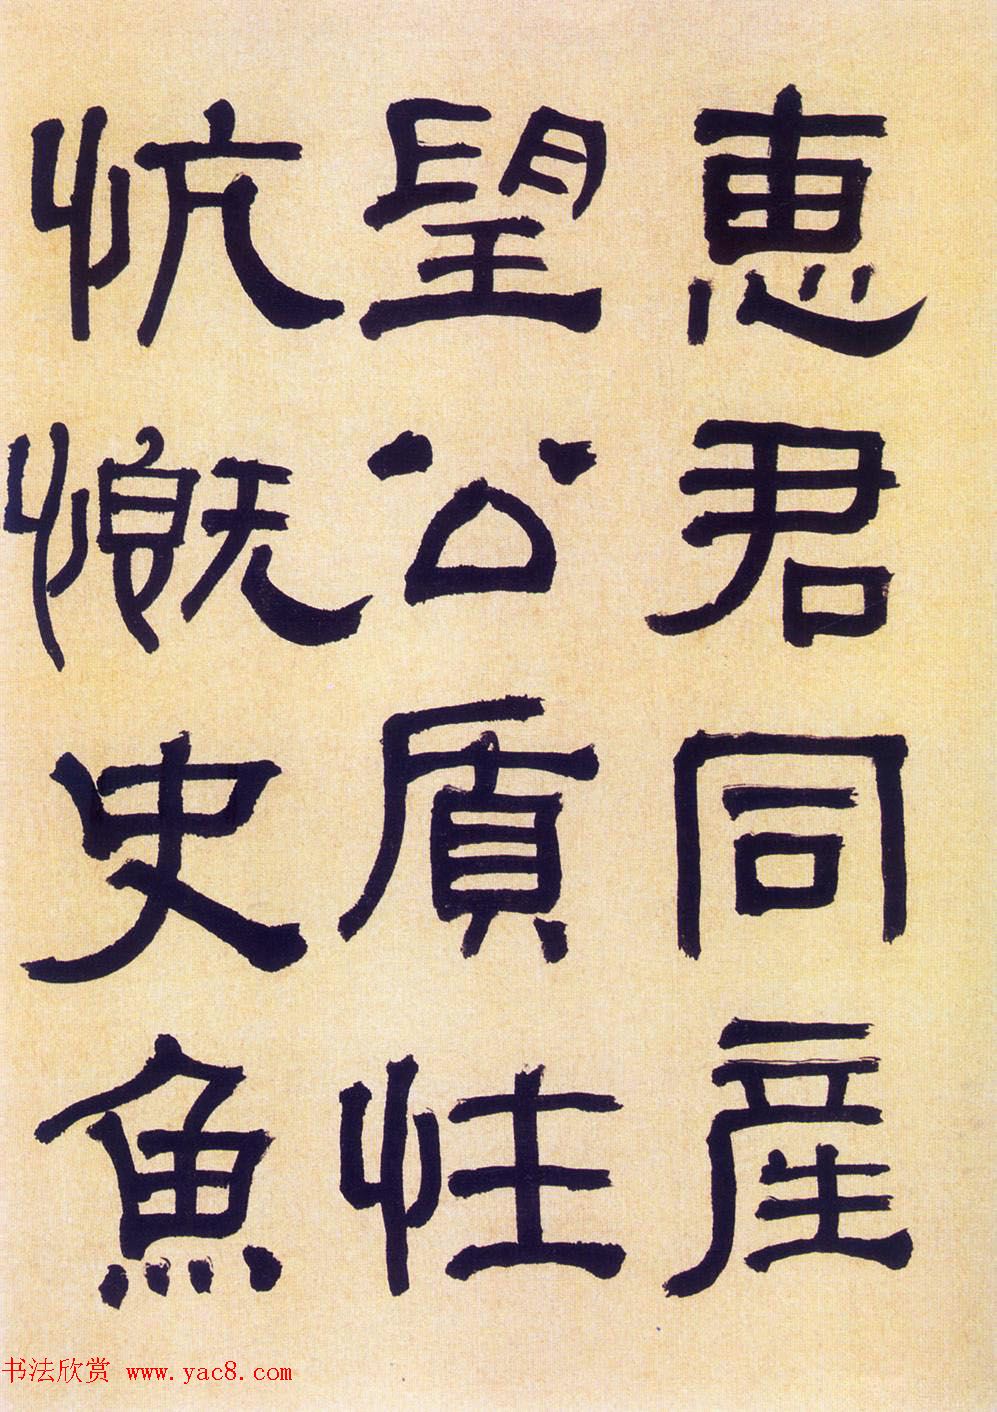 惠君同産
望公質性
忼慨史魚
书法欣赏 www.yac8.com